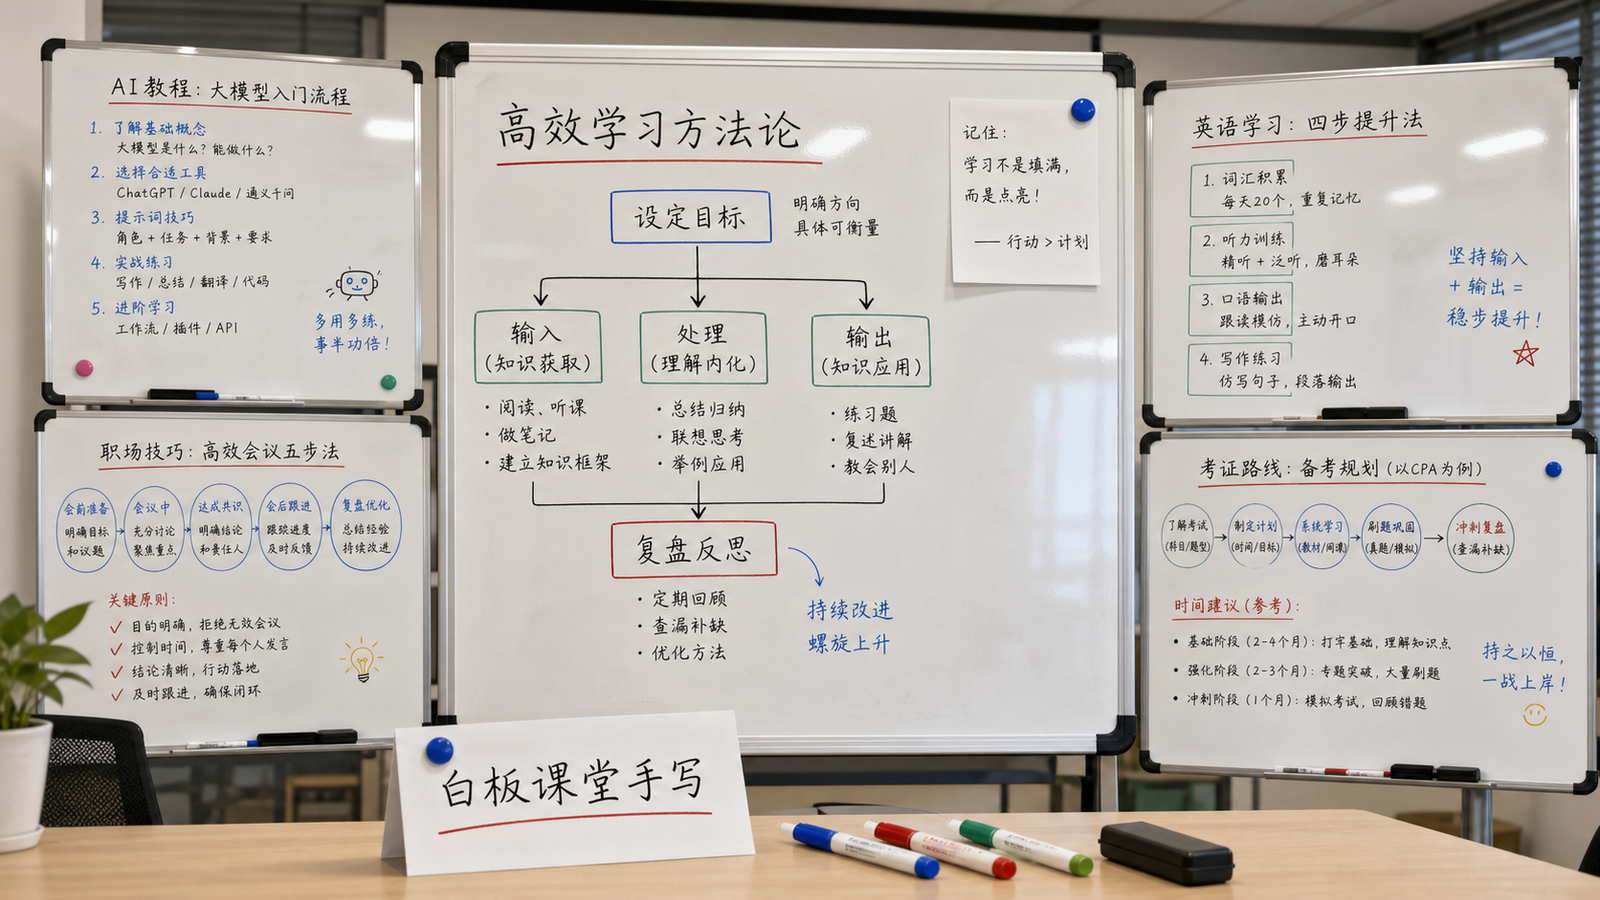 AI教程：大模型入门流程
1. 了解基础概念
大模型是什么？能做什么？
2. 选择合适工具
ChatGPT / Claude / 通义千问
3. 提示词技巧
角色 + 任务 + 背景 + 要求
4. 实战练习
写作 / 总结 / 翻译 / 代码
5. 进阶学习
工作流 / 插件 / API
多用多练，
事半功倍！
职场技巧：高效会议五步法
会前准备
明确目标
和议题
会议中
充分讨论
聚焦重点
达成共识
明确结论
和责任人
会后跟进
跟踪进度
及时反馈
复盘优化
总结经验
持续改进
关键原则：
✓ 目的明确，拒绝无效会议
✓ 控制时间，尊重每个人发言
✓ 结论清晰，行动落地
✓ 及时跟进，确保闭环
高效学习方法论
设定目标
明确方向
具体可衡量
输入
（知识获取）
· 阅读、听课
· 做笔记
· 建立知识框架
处理
（理解内化）
· 总结归纳
· 联想思考
· 举例应用
输出
（知识应用）
· 练习题
· 复述讲解
· 教会别人
复盘反思
· 定期回顾
· 查漏补缺
· 优化方法
持续改进
螺旋上升
记住：
学习不是填满，
而是点亮！
—— 行动 > 计划
英语学习：四步提升法
1. 词汇积累
每天20个，重复记忆
2. 听力训练
精听 + 泛听，磨耳朵
3. 口语输出
跟读模仿，主动开口
4. 写作练习
仿写句子，段落输出
坚持输入
+ 输出 =
稳步提升！
考证路线：备考规划（以CPA为例）
了解考试
（科目/题型）
制定计划
（时间/目标）
系统学习
（教材/网课）
刷题巩固
（真题/模拟）
冲刺复盘
（查漏补缺）
时间建议（参考）：
• 基础阶段（2-4个月）：打牢基础，理解知识点
• 强化阶段（2-3个月）：专题突破，大量刷题
• 冲刺阶段（1个月）：模拟考试，回顾错题
持之以恒，
一战上岸！
白板课堂手写